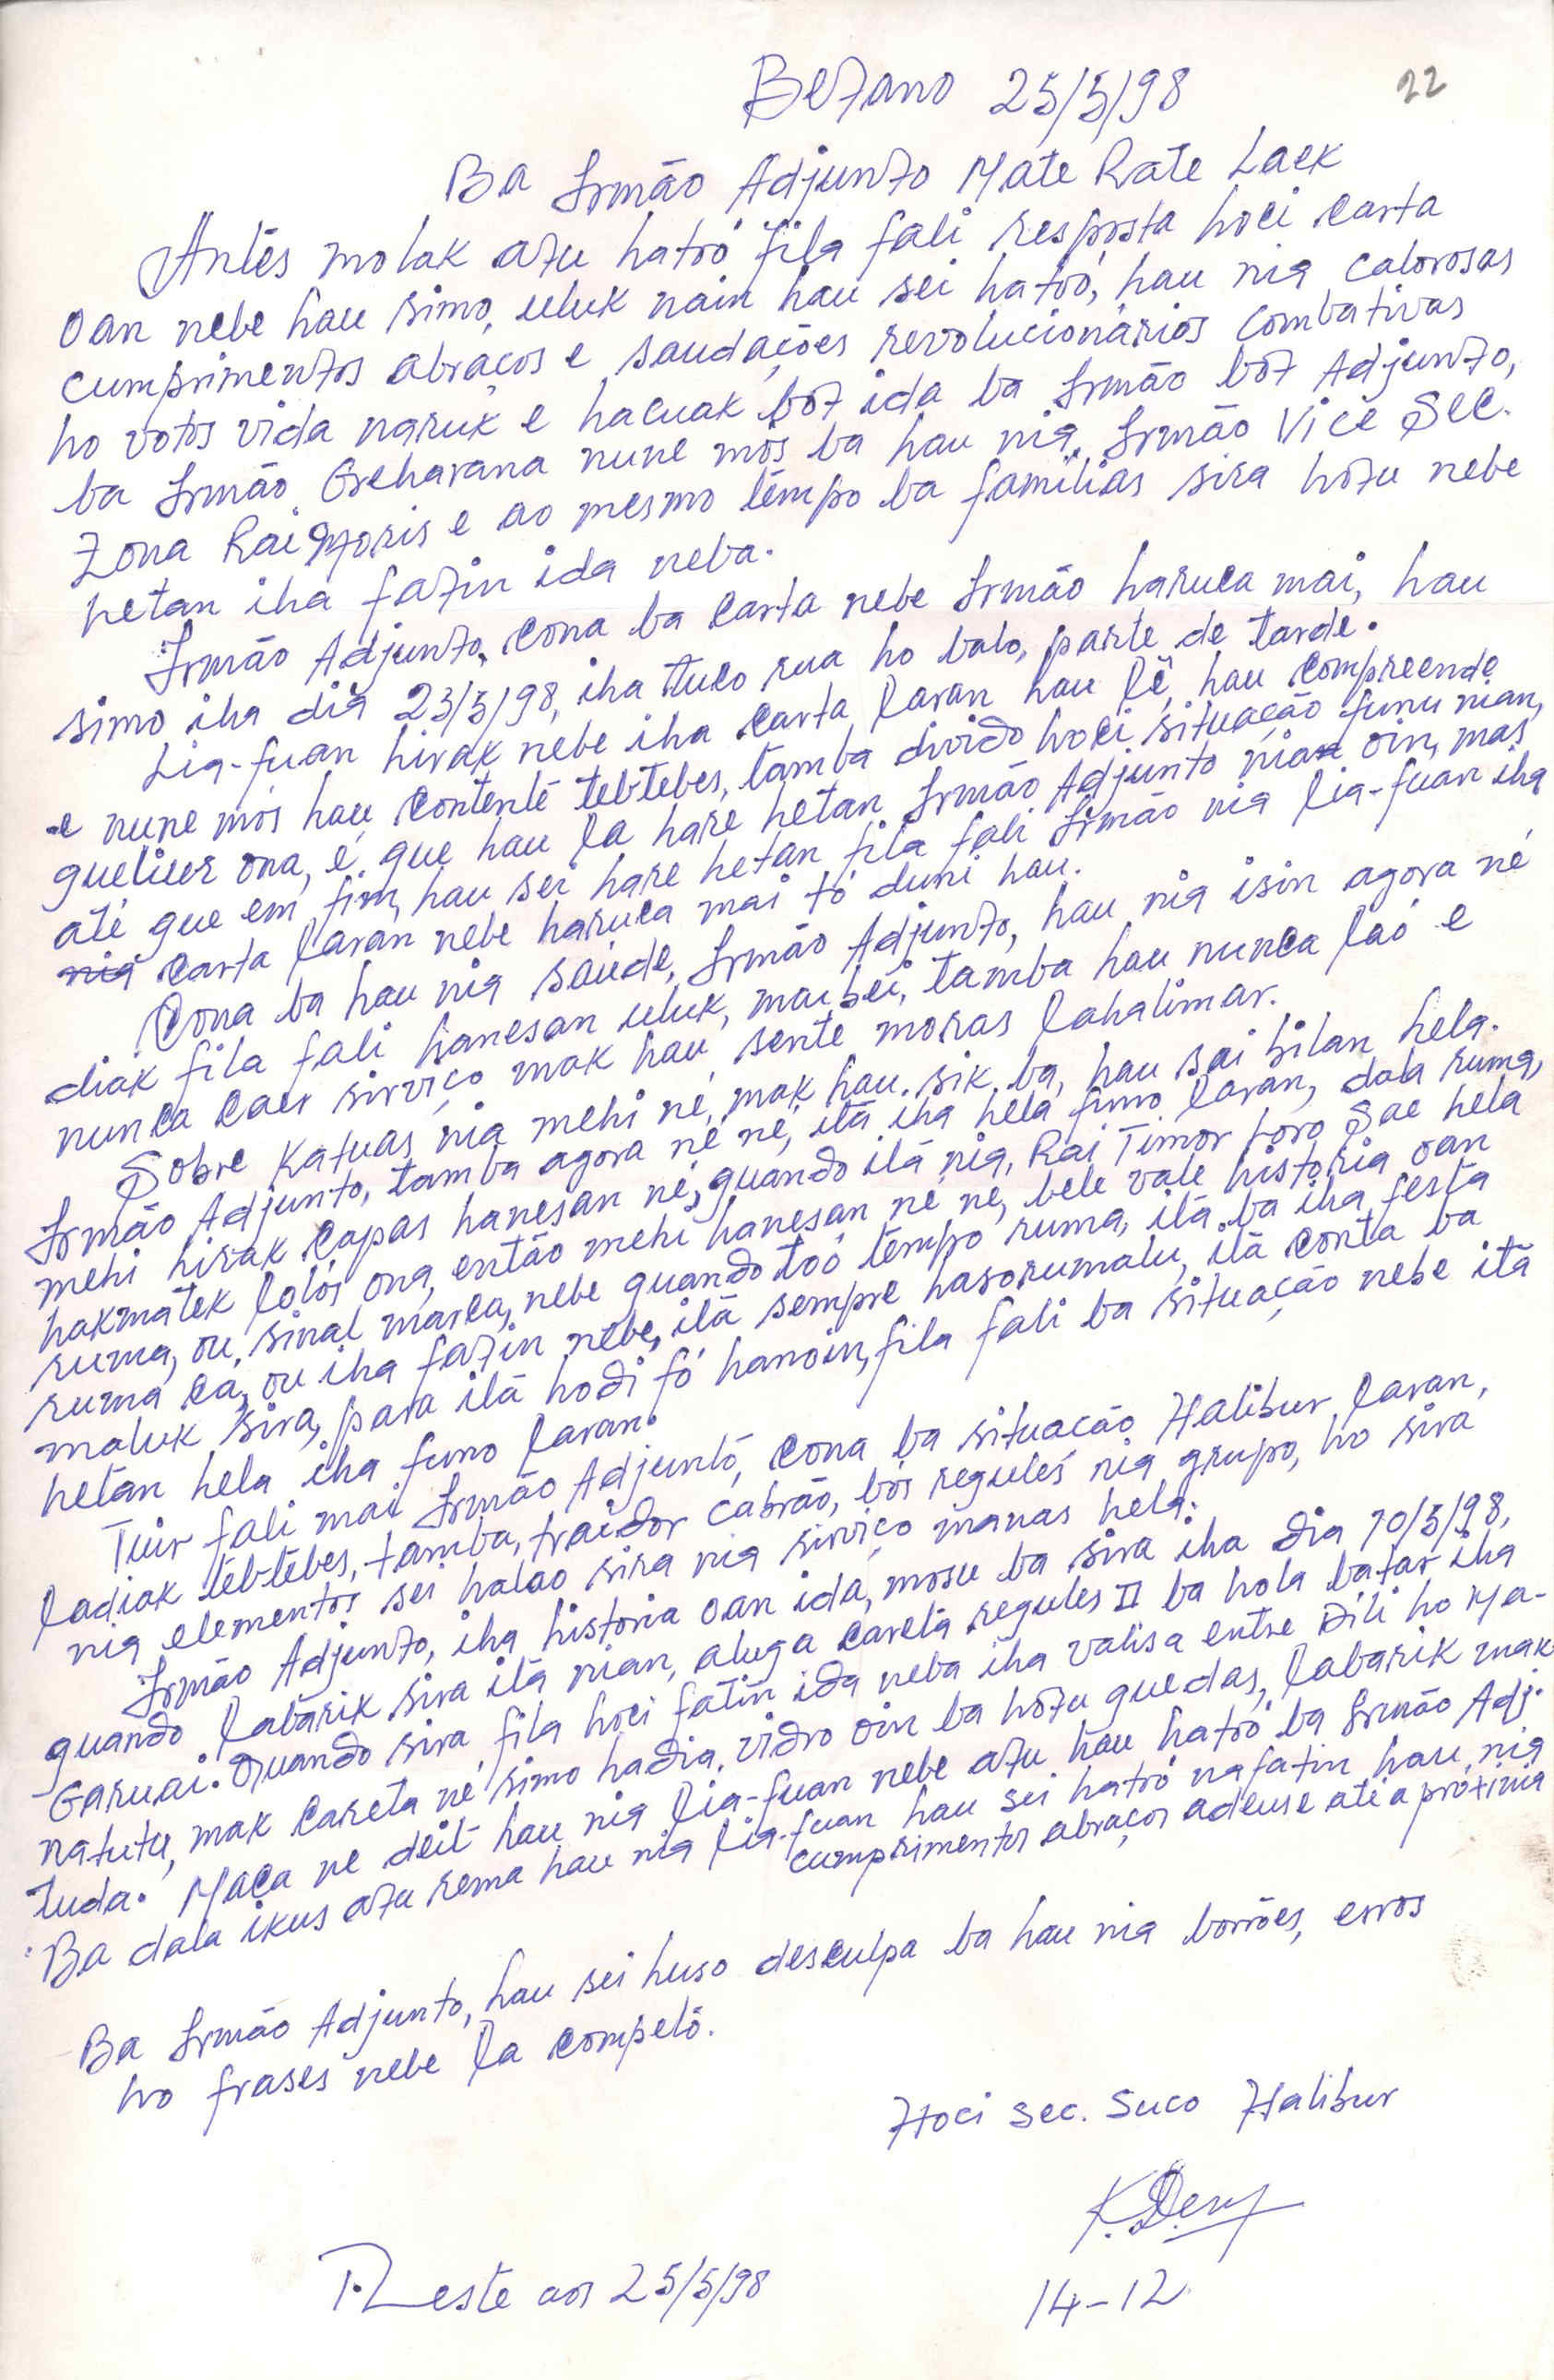 22
Betano 25/5/98
Ba Irmão Adjunto Mate Rate Laek
Antés molak atu hatoó fila fali resposta hoci carta
oan nebe hau simo, uluk nain hau sei hatoó, hau nia calorosas
cumprimentos abraços e saudações revolucionários combativas
ho votos vida naruk e hacuak bot ida ba Irmão bot Adjunto,
ba Irmão Greharana nune mós ba hau nia, Irmão Vice Sec.
Zona Rai Moris e ao mesmo tempo ba famílias sira hotu nebe
hetan iha fatin ida neba.
Irmão Adjunto, cona ba carta nebe Irmão haruca mai, hau
simo iha dia 23/5/98, iha tuco rua ho balo, parte de tarde.
Lia-fuan hirak nebe iha carta laran hau lê, hau compreende
e nune mós hau contente tebtebes, tamba dvido hoci situação funu nian,
queliuer ona, é que hau la hare hetan Irmão Adjunto nian oin, mas
até que em fim, hau sei hare hetan fila fali Irmão nia lia-fuan iha
nia carta laran nebe haruca mai tó duni hau.
Cona ba hau nia saúde, Irmão Adjunto, hau nia isin agora né
diak fila fali hanesan uluk, maibei, tamba hau nunca laó e
nunca caer sirviço mak hau sente moras lahalimar.
Sobre Katuas nia mehi né, mak hau sik ba, hau sai bilan hela.
Irmão Adjunto, tamba agora né né, itá iha hela funo laran, dala ruma,
mehi hirak capas hanesan né, quando itá nia, Rai Timor Loro Sae hela
hakmatek lolós ona, então mehi hanesan né né, bele vale historia oan
ruma, ou, sinal marca, nebe quando toó tempo ruma, itá ba iha festa
ruma ca, ou iha fatin nebe, itá sempre hasorumalu, itá conta ba
maluk sira, para itá hodi fó hanoin, fila fali ba situação nebe itá
hetan hela iha funo laran.
Tuir fali mai Irmão Adjunto, cona ba situação Halibur laran,
ladiak tebtebes, tamba, traidor cabrão, bós regulés nia grupo, ho sira
nia elementos sei halao sira nia sirviço manas hela.
Irmão Adjunto, iha historia oan ida, mosu ba sira iha dia 10/5/98,
quando labarik sira itá nian, aluga careta regules II ba hola batar iha
Garuai. Quando sira fila hoci fatin ida neba iha valisa entre Dili ho Ma-
natutu, mak careta né simo hadia vidro oin ba hotu guedas, labarik mak
tuda. Maca ne deit hau nia lia-fuan nebe atu hau hatoó ba Irmão Adj.
Ba dala ikus atu rema hau nia lia-fuan hau sei hatoó nafatin hau nia
cumprimentos abraços adeuse até a próxima
Ba Irmão Adjunto, hau sei huso desculpa ba hau nia borrões, erros
ho frases nebe la competó.
Hoci sec. Suco Halibur
14-12
Reste aos 25/5/98